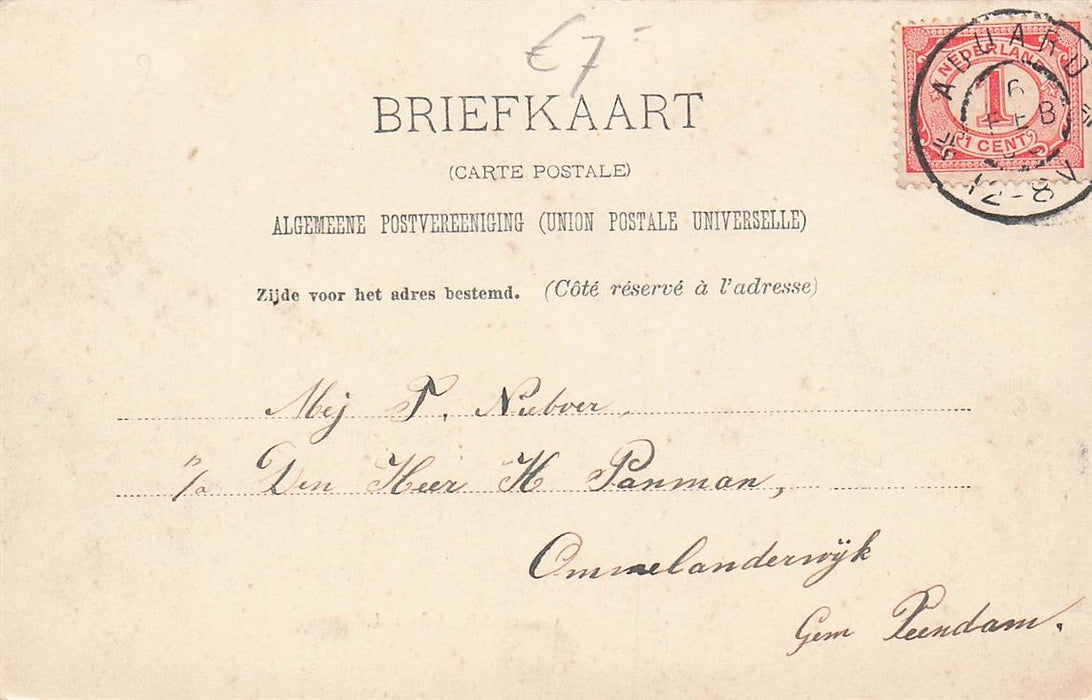 €7-
BRIEFKAART
(CARTE POSTALE)
ALGEMEENE POSTVEREENIGING (UNION POSTALE UNIVERSELLE)
Zijde voor het adres bestemd. (Côté réservé à l'adresse)
NEDERLAND
1
1 CENT
ADUARD
6
FEB
12-8V
Mej T. Nieboer
p/a Den Heer H Panman,
Ommelanderwijk
Gem Veendam.